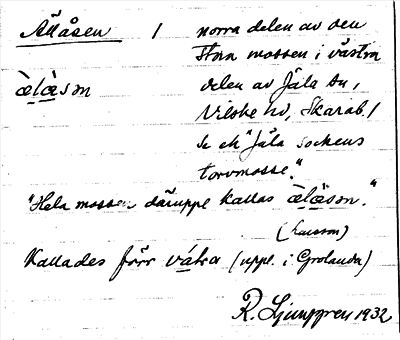 Allåsen / norra delen av den
stora mossen i västra
àlàsɔn delen av Jäla sn,
Vilske hd, Skarab. /
Se ek "Jäla sockens
torvmosse."
"Hela mossen däruppe kallas àlàsɔn."
(Larsson)
Kallades förr våtra (uppl. i Grolanda)
R. Ljunggren 1932